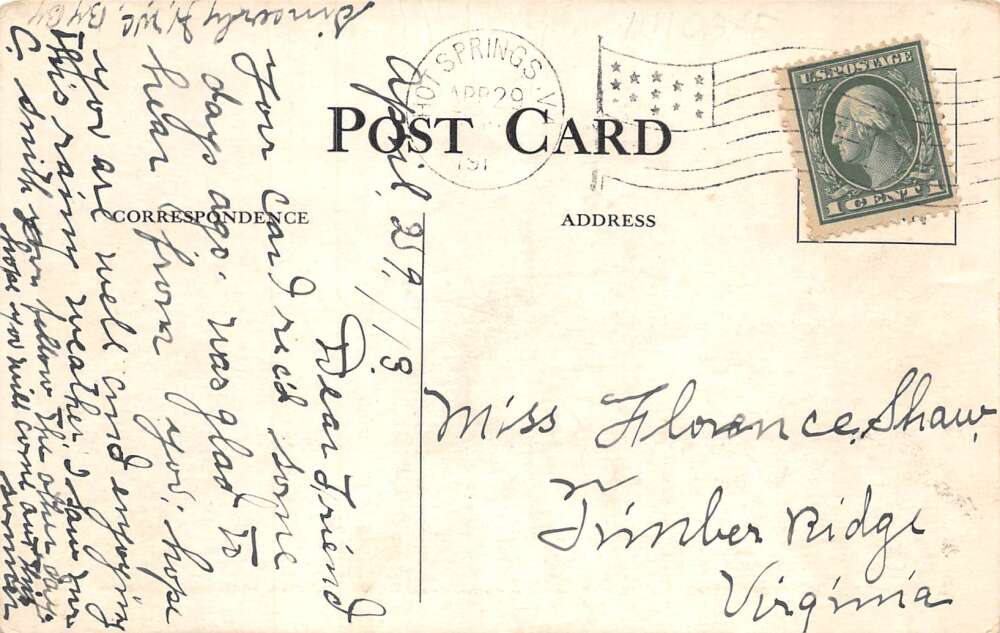 POST CARD
CORRESPONDENCE
ADDRESS
HOT SPRINGS, V
APR 29
191
U.S. POSTAGE
1 CENT 1
April 29 / 13.
Dear Friend
Your card rec'd some
days ago. was glad to
hear from you, hope
you are well and enjoying
this rainy weather. I saw
C. Smith your fellow the other day.
hope you will come out this
summer
Sincerely
Miss Florence Shaw,
Timber Ridge
Virginia